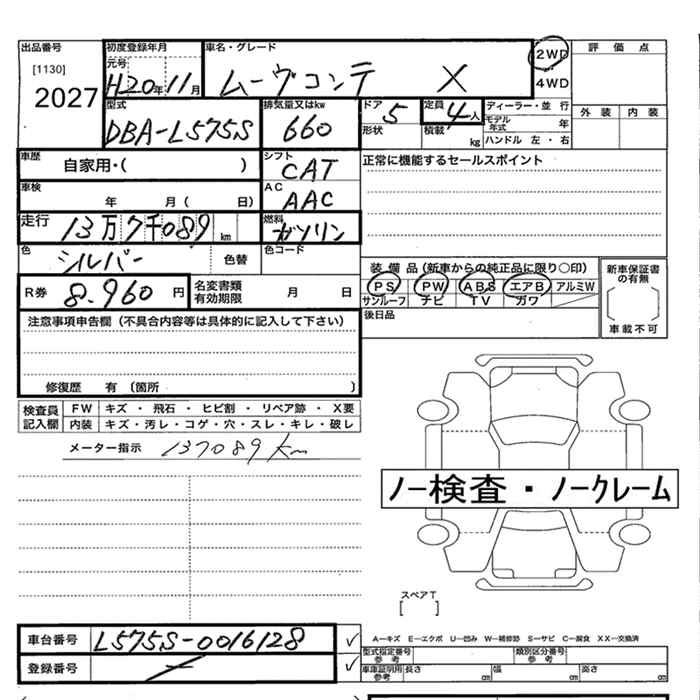 出品番号 初度登録年月 車名・グレード 2WD 評価点
[1130] 元号
2027 H20年11月 ムーヴコンテ X 4WD
型式 排気量又はkw ドア 定員 ディーラー・並行 外装 内装
DBA-L575S 660 5 4人 モデル年式 年
形状 積載 kg ハンドル 左・右
車歴 自家用・( ) シフト CAT 正常に機能するセールスポイント
車検 年 月( 日) AC AAC
走行 13万7千089km 燃料 ガソリン
色 シルバー 色替 色コード
装備品(新車からの純正品に限り○印) 新車保証書の有無
R券 8.960円 名変書類有効期限 月 日 PS PW ABS エアB アルミW
サンルーフ ナビ TV ガワ [ ]
注意事項申告欄(不具合内容等は具体的に記入して下さい) 後日品 車載不可
修復歴 有(箇所 )
検査員記入欄 FW キズ・飛石・ヒビ割・リペア跡・X要
内装 キズ・汚レ・コゲ・穴・スレ・キレ・破レ
メーター指示 137089km
ノー検査・ノークレーム
スペアT
[ ]
車台番号 L575S-0016128 ✓ A―キズ E―エクボ U―凹み W―補修跡 S―サビ C―腐食 XX―交換済
型式指定番号 参考 類別区分番号 参考
登録番号 ― ✓ 車庫証明用参考 長さ cm 幅 cm 高さ cm